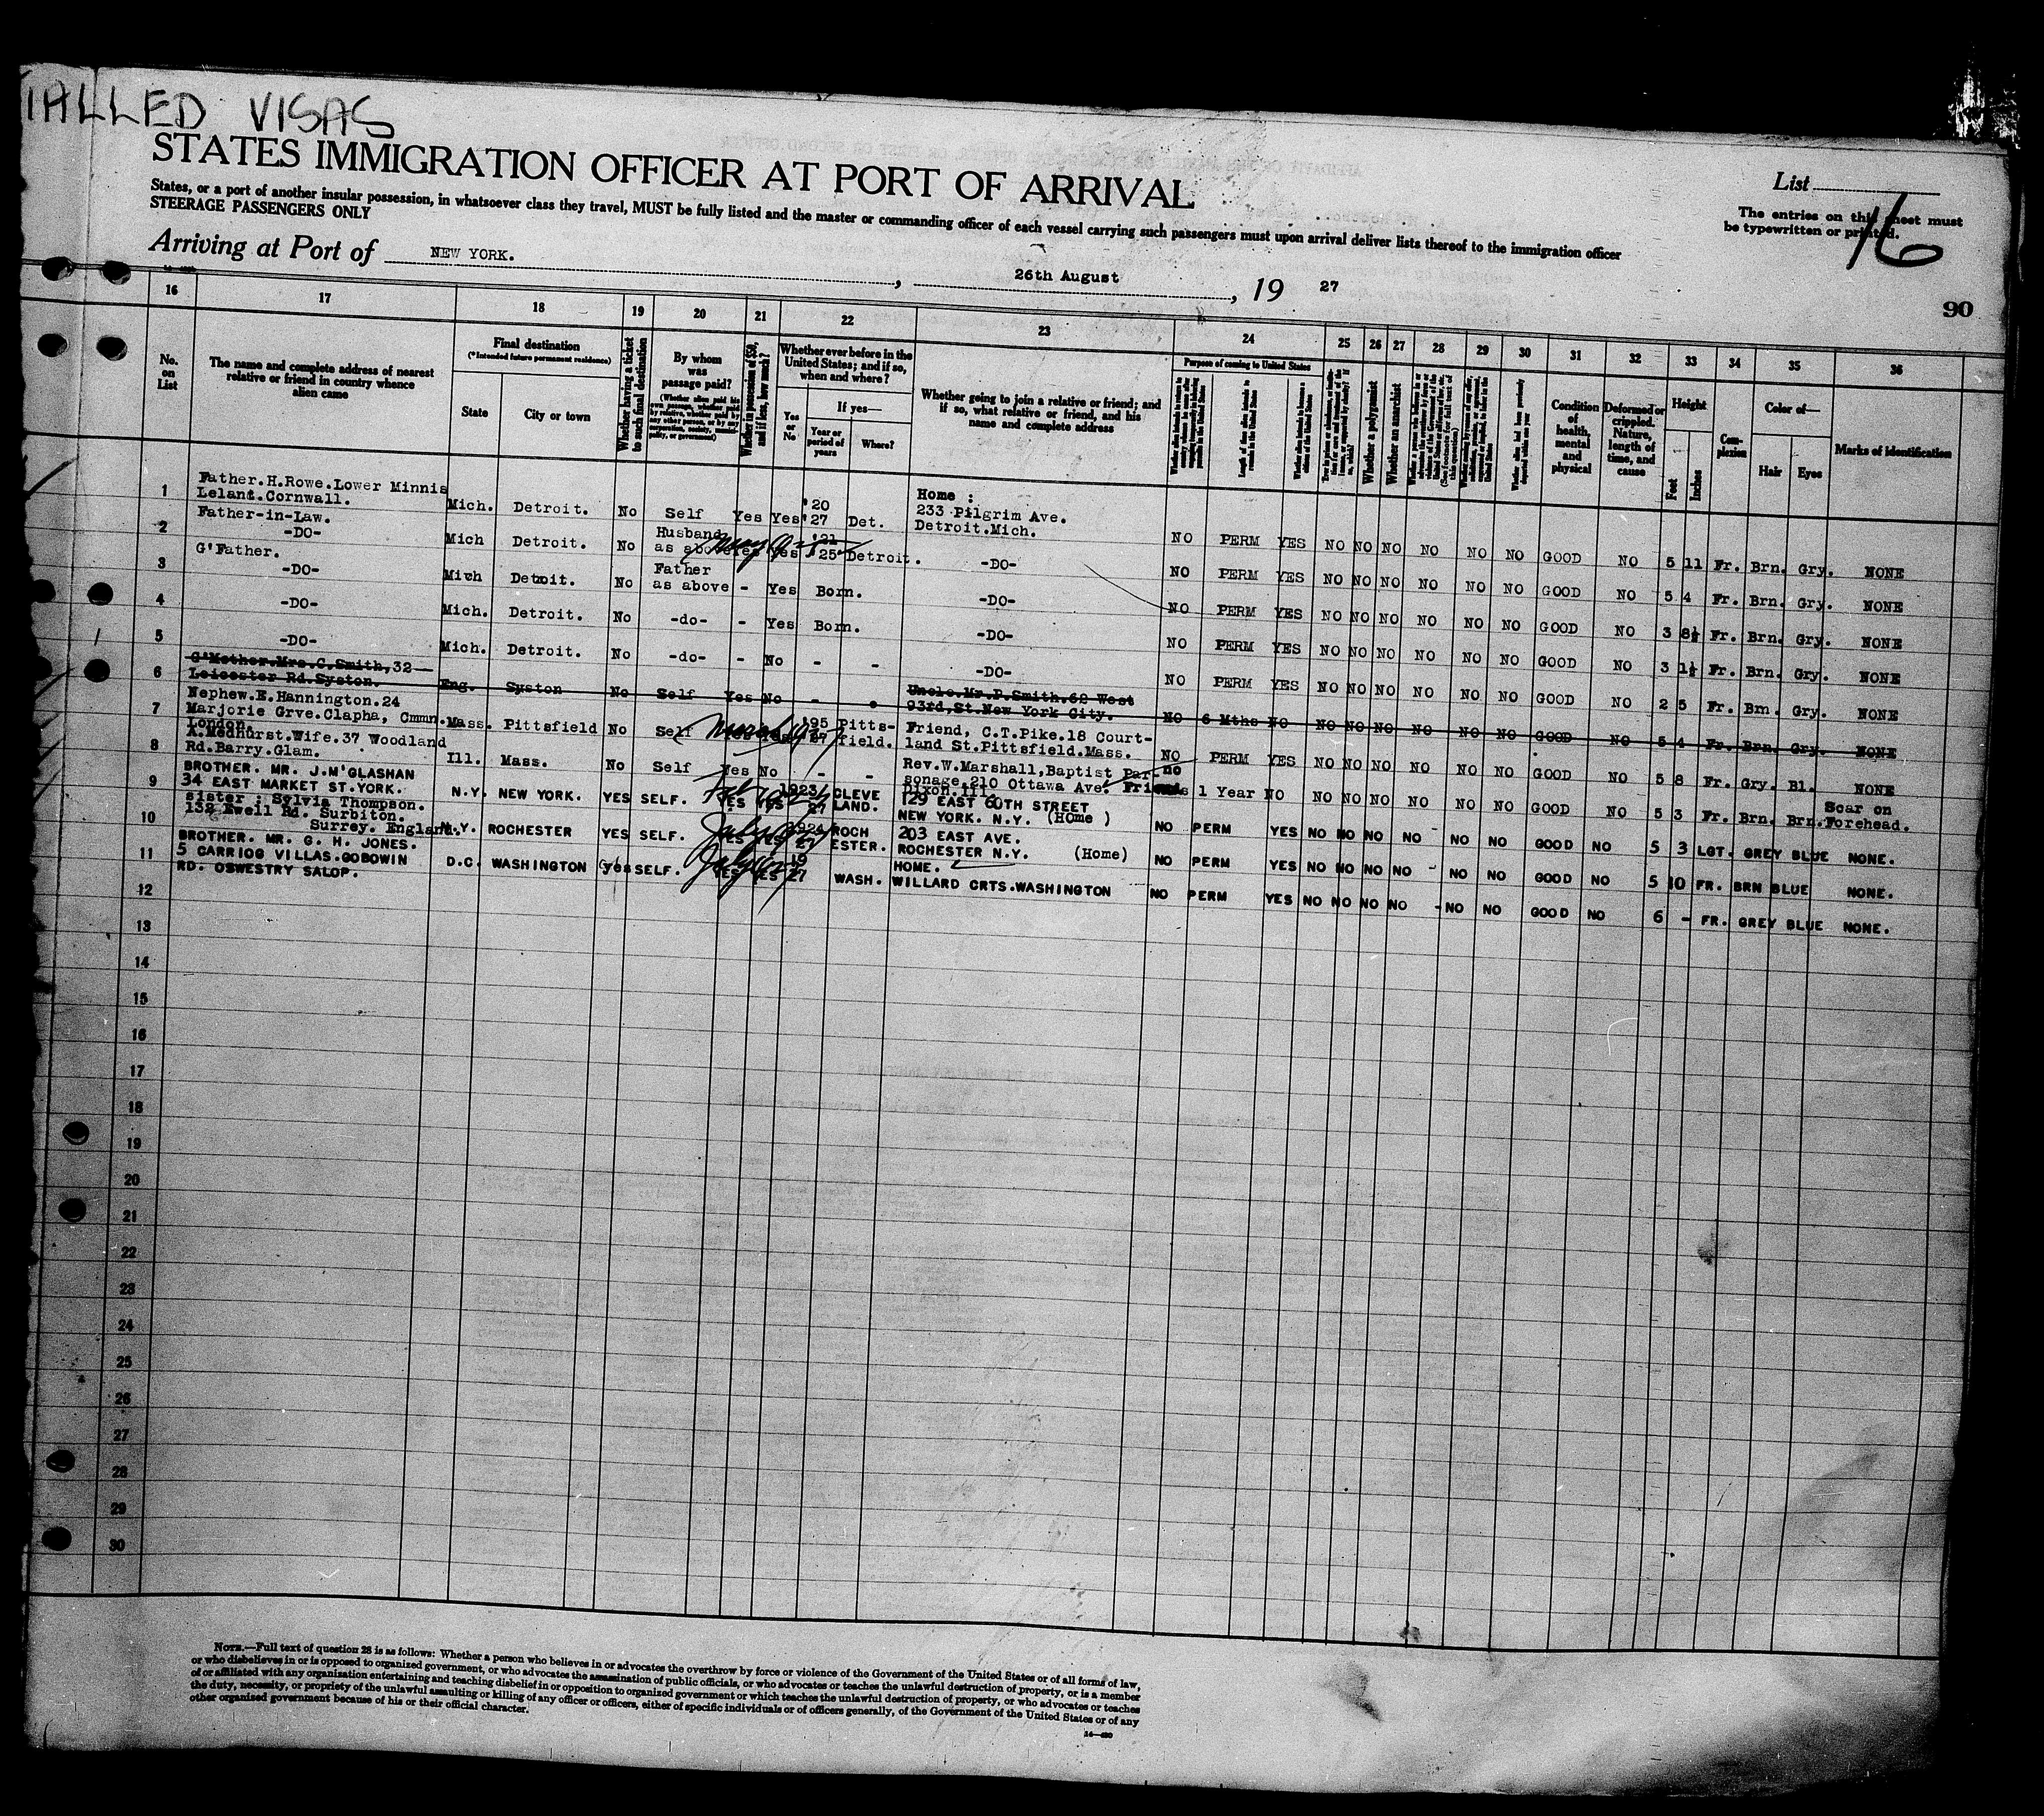 IALLED VISAS
STATES IMMIGRATION OFFICER AT PORT OF ARRIVAL
States, or a port of another insular possession, in whatsoever class they travel, MUST be fully listed and the master or commanding officer of each vessel carrying such passengers must upon arrival deliver lists thereof to the immigration officer
STEERAGE PASSENGERS ONLY
List
The entries on this sheet must
be typewritten or printed.
16
Arriving at Port of NEW YORK. , 26th August , 19 27
90
16 17 18 19 20 21 22 23 24 25 26 27 28 29 30 31 32 33 34 35 36
No. on List
The name and complete address of nearest relative or friend in country whence alien came
Final destination
(*Intended future permanent residence)
State
City or town
Whether having a ticket to such final destination
By whom was passage paid?
(Whether alien paid his own passage, whether paid by relative, whether paid by any other person, or by any corporation, society, municipality, or government)
Whether in possession of $50, and if less, how much?
Whether ever before in the United States; and if so, when and where?
Yes or No
If yes—
Year or period of years
Where?
Whether going to join a relative or friend; and if so, what relative or friend, and his name and complete address
Purpose of coming to United States
Length of time alien intends to remain in the United States
Whether a polygamist
Whether an anarchist
Condition of health, mental and physical
Deformed or crippled. Nature, length of time, and cause
Height
Feet
Inches
Complexion
Color of—
Hair
Eyes
Marks of identification
1 Father.H.Rowe.Lower Minnis Lelant.Cornwall. Mich. Detroit. No Self Yes Yes '20 '27 Det. Home : 233 Pilgrim Ave. Detroit.Mich. NO PERM YES NO NO NO NO NO NO GOOD NO 5 11 Fr. Brn. Gry. NONE
2 Father-in-Law. -DO- Mich Detroit. No Husband as above Yes '21 '25 Detroit. -DO- NO PERM YES NO NO NO NO NO NO GOOD NO 5 4 Fr. Brn. Gry. NONE
3 G'Father. -DO- Mich Detroit. No Father as above - Yes Born. -DO- NO PERM YES NO NO NO NO NO NO GOOD NO 3 8½ Fr. Brn. Gry. NONE
4 -DO- Mich. Detroit. No -do- - Yes Born. -DO- NO PERM YES NO NO NO NO NO NO GOOD NO 3 1½ Fr. Brn. Gry. NONE
5 -DO- Mich. Detroit. No -do- - No - - -DO- NO PERM YES NO NO NO NO NO NO GOOD NO 2 5 Fr. Brn. Gry. NONE
6 G'Mother.Mrs.C.Smith,32 Leicester Rd.Syston. Eng. Syston No Self Yes No - Uncle.Mr.P.Smith.62 West 93rd,St.New York City. NO 6 Mths NO NO NO NO NO NO NO GOOD NO 5 4 Fr. Brn. Gry. NONE
7 Nephew.E.Hannington.24 Marjorie Grve.Clapha, Cmmn. London. Mass. Pittsfield No Self '95 Pitts-field. Friend, C.T.Pike.18 Court-land St.Pittsfield.Mass. NO PERM YES NO NO NO NO NO NO GOOD NO 5 8 Fr. Gry. Bl. NONE
8 A.Medhurst.Wife.37 Woodland Rd.Barry.Glam. Ill. Mass. No Self Yes No - - Rev.W.Marshall,Baptist Par-sonage.210 Ottawa Ave. Dixon.Ill. no 1 Year NO NO NO NO NO NO NO GOOD NO 5 3 Fr. Brn. Brn. Scar on Forehead.
9 BROTHER. MR. J.M'GLASHAN 34 EAST MARKET ST.YORK. N.Y. NEW YORK. YES SELF. YES YES 1923 27 CLEVE LAND. 129 EAST 60TH STREET NEW YORK. N.Y. (HOme ) NO PERM YES NO NO NO NO - NO NO GOOD NO 5 3 LGT. GREY BLUE NONE.
10 Sister : Sylvia Thompson. 132 Ewell Rd. Surbiton. Surrey. England. N.Y. ROCHESTER YES SELF. YES YES 1924 27 ROCH ESTER. 203 EAST AVE. ROCHESTER N.Y. (Home) NO PERM YES NO NO NO NO - NO NO GOOD NO 5 10 FR. BRN BLUE NONE.
11 BROTHER. MR. G. H. JONES. 5 CARRIOG VILLAS.GOBOWIN RD. OSWESTRY SALOP. D.C. WASHINGTON yes SELF. YES YES 19 27 WASH. HOME. WILLARD CRTS.WASHINGTON NO PERM YES NO NO NO NO - NO NO GOOD NO 6 - FR. GREY BLUE NONE.
12
13
14
15
16
17
18
19
20
21
22
23
24
25
26
27
28
29
30
NOTE.—Full text of question 28 is as follows: Whether a person who believes in or advocates the overthrow by force or violence of the Government of the United States or of all forms of law,
or who disbelieves in or is opposed to organized government, or who advocates the assassination of public officials, or who advocates or teaches the unlawful destruction of property, or is a member
of or affiliated with any organization entertaining and teaching disbelief in or opposition to organized government or which teaches the unlawful destruction of property, or who advocates or teaches
the duty, necessity, or propriety of the unlawful assaulting or killing of any officer or officers, either of specific individuals or of officers generally, of the Government of the United States or of any
other organized government because of his or their official character.